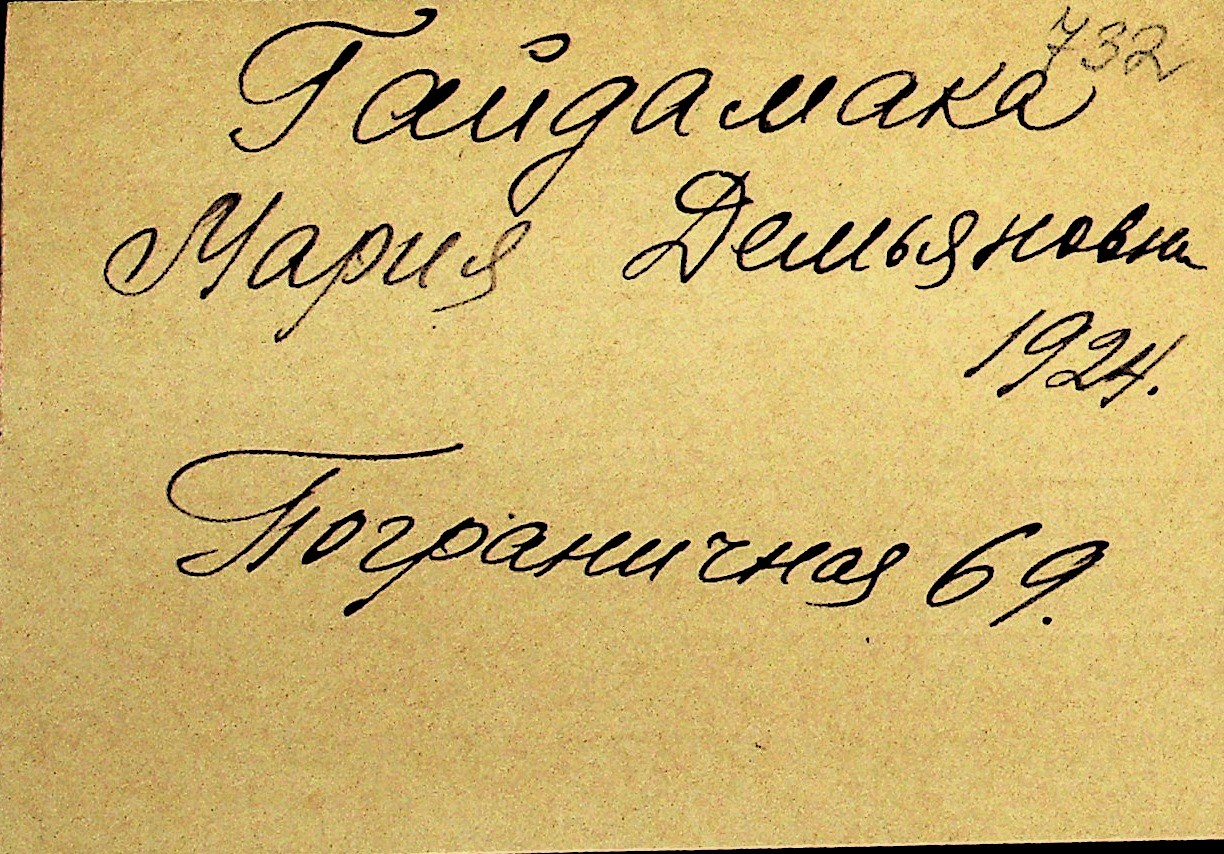 732
Гайдамака
Мария Демьяновна
1924.
Пограничная 69.